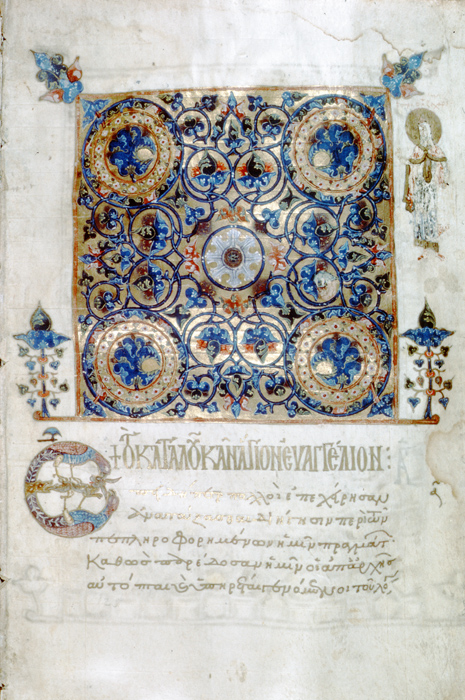 +ΤὸΚΑΤΑΛΟΥΚΑΝἉΓΙΟΝΕΥΑΓΓΕΛΙΟΝ:
πολλοὶ ἐπεχήρησαν
διήγησιν περὶ τῶν
πεπληροφορημένων ἐν ἡμῖν πραγμάτ.
Καθὼς παρέδοσαν ἡμῖν οἱ ἀπαρχῆς
αὐτόπται καὶ ὑπηρέται γενόμενοι τοῦ λό